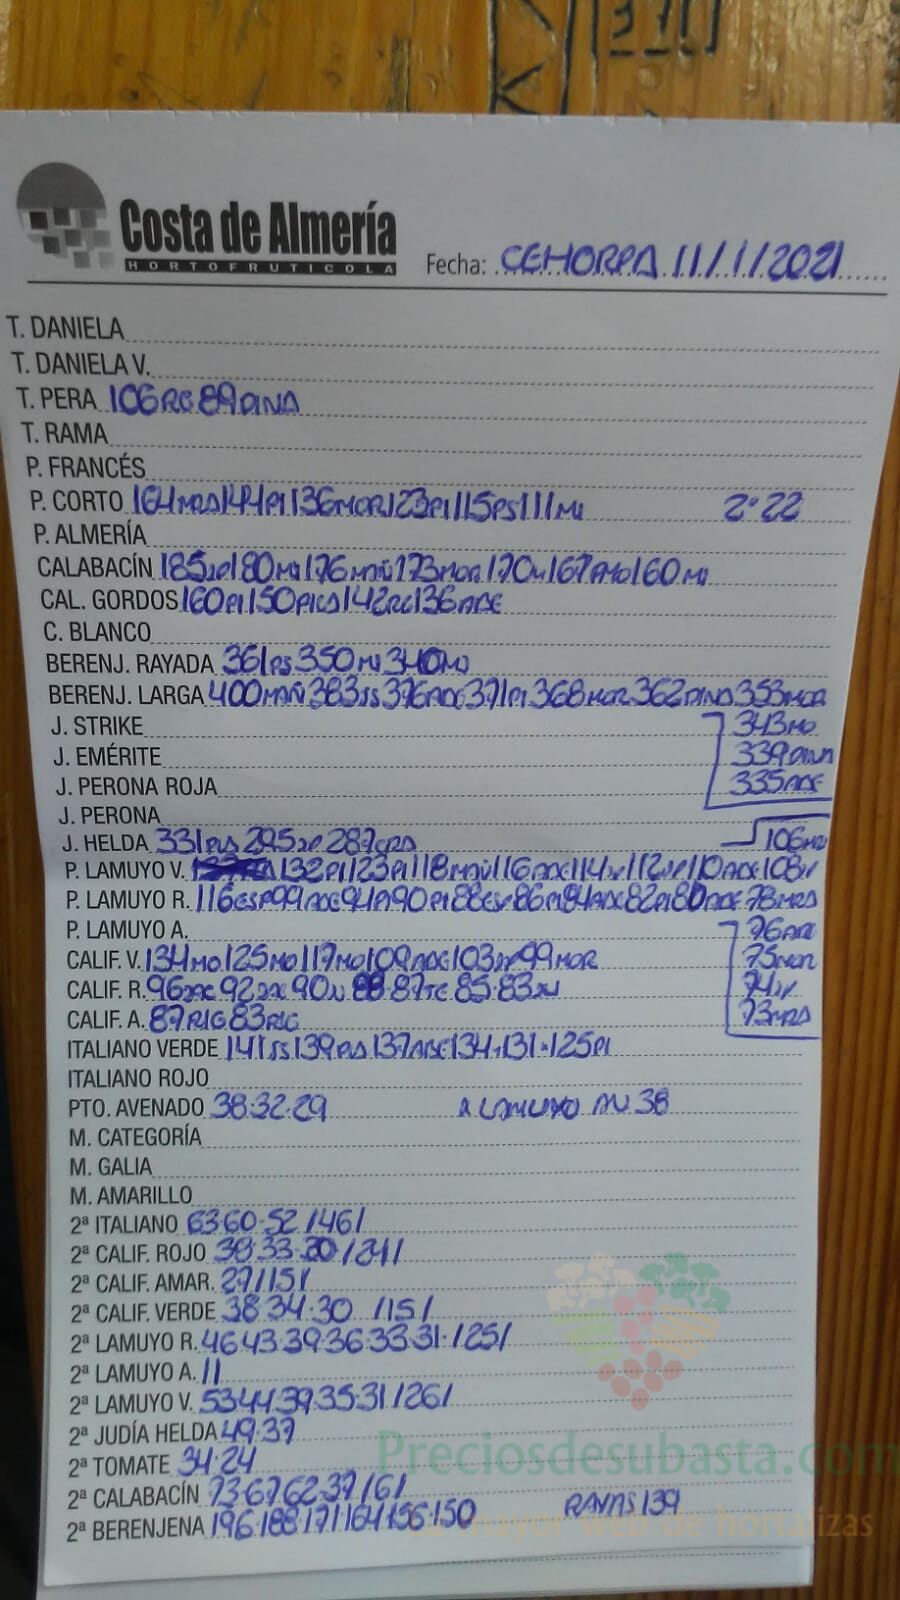 Costa de Almería
HORTOFRUTICOLA
Fecha: CEHORPA 11/1/2021
T. DANIELA
T. DANIELA V.
T. PERA 106RG 89DINA
T. RAMA
P. FRANCÉS
P. CORTO 164MRA 144PI 136MOR 123PI 115PS 111MI 2ª 22
P. ALMERÍA
CALABACÍN 185 180 176MAÑ 173MOR 170 167 160MI
CAL. GORDOS 160PI 150PICA 142RG 136ADE
C. BLANCO
BERENJ. RAYADA 361PS 350MI 340MO
BERENJ. LARGA 400MAÑ 383SS 376ADE 371PI 368MOR 362DINA 353MOR
J. STRIKE 343MO
J. EMÉRITE 339DINA
J. PERONA ROJA 335ADE
J. PERONA
J. HELDA 331 295 287 106MO
P. LAMUYO V. 132PI 123PI 118MAÑ 116ADE 114JV 112JV 110ADE 108JV
P. LAMUYO R. 116ESP 99ADE 94PI 90PI 88 86PI 84ADE 82PI 80ADE 78MRA
P. LAMUYO A. 76ADE
CALIF. V. 134MO 125MO 117MO 109ADE 103 99MOR 75MOR
CALIF. R. 96 92 90 88·87TC 85·83 74JV
CALIF. A. 87RIG 83RIG 73MRA
ITALIANO VERDE 141SS 139 137ADE 134·131·125PI
ITALIANO ROJO
PTO. AVENADO 38·32·29 R LAMUYO AV 38
M. CATEGORÍA
M. GALIA
M. AMARILLO
2ª ITALIANO 63·60·52 /46/
2ª CALIF. ROJO 38·33·30 /21/
2ª CALIF. AMAR. 27/15/
2ª CALIF. VERDE 38·34·30 /15/
2ª LAMUYO R. 46·43·39·36·33·31·/25/
2ª LAMUYO A. 11
2ª LAMUYO V. 53·44·39·35·31 /26/
2ª JUDÍA HELDA 49·37
2ª TOMATE 34·24
Preciosdesubasta.com
2ª CALABACÍN 73·67·62·37 /6/
2ª BERENJENA 196·188·171·164·156·150 RAYAS 139
mayor web de hortalizas